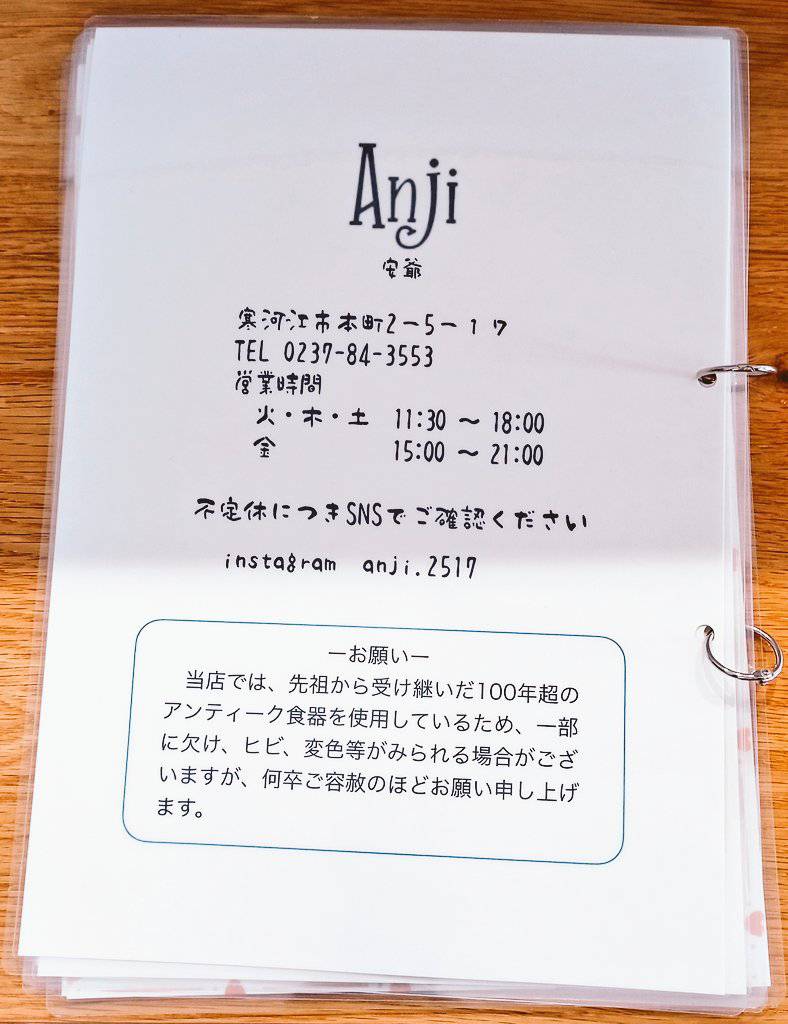 Anji
安爺
寒河江市本町2-5-17
TEL 0237-84-3553
営業時間
火・木・土 11:30 ～ 18:00
金 15:00 ～ 21:00
不定休につきSNSでご確認ください
instagram anji.2517
ーお願いー
当店では、先祖から受け継いだ100年超の
アンティーク食器を使用しているため、一部
に欠け、ヒビ、変色等がみられる場合がござ
いますが、何卒ご容赦のほどお願い申し上げ
ます。